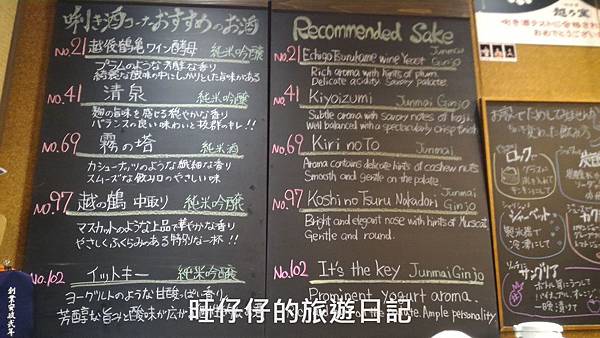 吟き酒コーナーおすすめのお酒
No.21 越後鶴亀ワイン酵母 純米吟醸
プラムのような芳醇な香り
綺麗な酸味の中にしっかりとした旨味がある
No.41 清泉 純米吟醸
麹の旨味を感じる穏やかな香り
バランスの良い味わいと抜群のキレ!!
No.69 霧の塔 純米酒
カシューナッツのような繊細な香り
スムーズな飲み口のやさしい味
No.97 越の鶴 中取り 純米吟醸
マスカットのような上品で華やかな香り
やさしくふくらみのある特別な一杯!!
No.102 イットキー 純米吟醸
ヨーグルトのような甘酸っぱい香り
芳醇な旨みと酸味が広が
Recommended Sake
No.21 Echigo Tsurukame wine Yeast Junmai Ginjo
Rich aroma with hints of plum.
Delicate acidity. Savory palate.
No.41 Kiyoizumi Junmai Ginjo
Subtle aroma with savory notes of koji.
Well balanced with a spectacularly crisp finish
No.69 Kiri no To Junmai
Aroma contains delicate hints of cashew nuts
Smooth and gentle on the palate.
No.97 Koshi no Tsuru Nakadori Junmai Ginjo
Bright and elegant nose with hints of Muscat
Gentle and round.
No.102 It's the key Junmai Ginjo
Prominent yogurt aroma.
Ample personality
越乃室
吟き酒テストに合格
おめでとうござい
ロック
グラスに
シャーベット
製氷器で
冷凍にして
サングリア
一晩漬けて
創業安政弐年
旺仔仔的旅遊日記